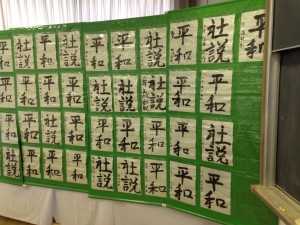 平和 平和 平和 社説 平和 平和 社説 平和 社説 平和
平和 平和 平和 社説 社説 社説 社説 平和 社説
平和 社説 社説 平和 平和 平和 平和 平和 社説
社説 平和 平和 平和 社説 社説 平和 平和 平和